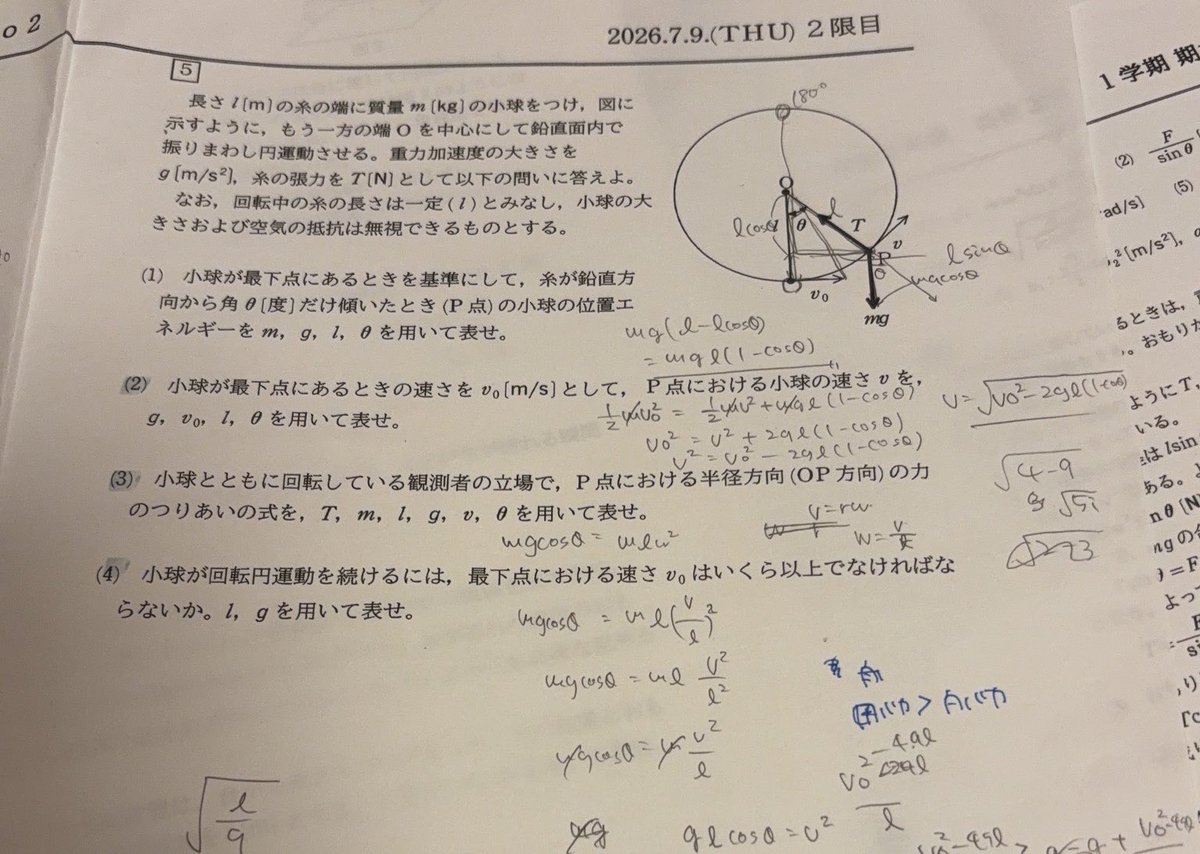 02
2026.7.9.(THU) 2限目
5
長さ l[m]の糸の端に質量 m[kg]の小球をつけ，図に
示すように，もう一方の端 O を中心にして鉛直面内で
振りまわし円運動させる。重力加速度の大きさを
g[m/s²]，糸の張力を T[N]として以下の問いに答えよ。
なお，回転中の糸の長さは一定(l)とみなし，小球の大
きさおよび空気の抵抗は無視できるものとする。
180°
O
l
lcosθ
θ
T
v
P
lsinθ
θ
mgcosθ
v₀
mg
(1) 小球が最下点にあるときを基準にして，糸が鉛直方
向から角 θ[度]だけ傾いたとき(P 点)の小球の位置エ
ネルギーを m，g，l，θ を用いて表せ。
mg(l-lcosθ)
= mgl(1-cosθ)
(2) 小球が最下点にあるときの速さを v₀[m/s]として，P 点における小球の速さ v を，
g，v₀，l，θ を用いて表せ。
½mv₀² = ½mv² + mgl(1-cosθ)
v₀² = v² + 2gl(1-cosθ)
v² = v₀² - 2gl(1-cosθ)
v=√v₀²-2gl(1-cosθ)
(3) 小球とともに回転している観測者の立場で，P 点における半径方向(OP 方向)の力
のつりあいの式を，T，m，l，g，v，θ を用いて表せ。
mgcosθ = mlω²
v=rω
ω=v/l
√4-9
(4) 小球が回転円運動を続けるには，最下点における速さ v₀ はいくら以上でなければな
らないか。l，g を用いて表せ。
mgcosθ = ml(v/l)²
mgcosθ = ml v²/l²
mgcosθ = m v²/l
glcosθ = v²
√l/g
v₀²-4gl
l
1学期 期
(2) F/sinθ
(5)
rad/s]
[m/s²]，
るときは，
。おもりが
ように T，
いる。
は lsin
ある。
nθ [N
ng の
)＝F
よって